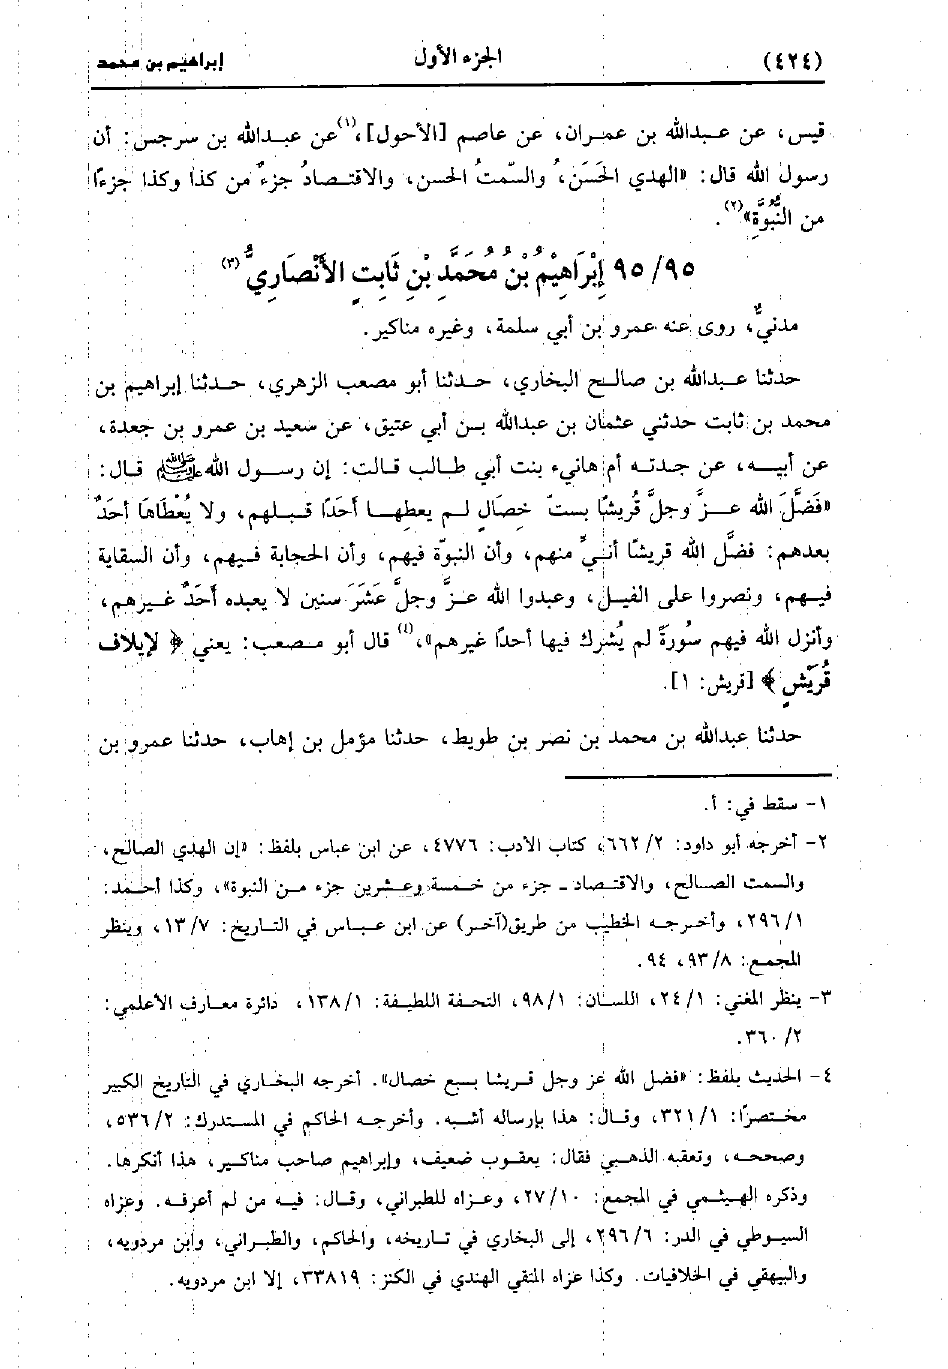 (٤٢٤) الجزء الأول إبراهيم بن محمد
قيس، عن عبدالله بن عمران، عن عاصم [الأحول]،(١) عن عبدالله بن سرجس: أن
رسول الله قال: «الهدي الحَسَنُ، والسَّمتُ الحسن، والاقتصادُ جزءٌ من كذا وكذا جزءًا
من النُّبُوَّةِ»(٢).
٩٥/ ٩٥ إِبْرَاهِيْمُ بْنُ مُحَمَّدِ بْنِ ثَابِتٍ الأَنْصَارِيُّ(٣)
مدنيٌّ، روى عنه عمرو بن أبي سلمة، وغيره مناكير.
حدثنا عبدالله بن صالح البخاري، حدثنا أبو مصعب الزهري، حدثنا إبراهيم بن
محمد بن ثابت حدثني عثمان بن عبدالله بن أبي عتيق، عن سعيد بن عمرو بن جعدة،
عن أبيه، عن جدته أم هانيء بنت أبي طالب قالت: إن رسول الله ﷺ قال:
«فَضَّلَ الله عزَّ وجلَّ قُريشًا بست خِصَالٍ لم يعطها أحَدًا قبلهم، ولا يُعْطَاهَا أحَدٌ
بعدهم: فضَّل الله قريشًا أنيِّ منهم، وأن النبوّة فيهم، وأن الحجابة فيهم، وأن السقاية
فيهم، ونصروا على الفيل، وعبدوا الله عزَّ وجلَّ عَشَرَ سنين لا يعبده أحَدٌ غيرهم،
وأنزل الله فيهم سُورَةً لم يُشرك فيها أحدًا غيرهم»،(٤) قال أبو مصعب: يعني ﴿ لإيلاف
قُرَيْشٍ ﴾ [قريش: ١].
حدثنا عبدالله بن محمد بن نصر بن طويط، حدثنا مؤمل بن إهاب، حدثنا عمرو بن
١- سقط في: أ.
٢- أخرجه أبو داود: ٢/ ٦٦٢، كتاب الأدب: ٤٧٧٦، عن ابن عباس بلفظ: «إن الهدي الصالح،
والسمت الصالح، والاقتصاد ـ جزء من خمسة وعشرين جزء من النبوة»، وكذا أحمد:
١/ ٢٩٦، وأخرجه الخطيب من طريق(آخر) عن ابن عباس في التاريخ: ٧/ ١٣، وينظر
المجمع: ٨/ ٩٣، ٩٤.
٣- ينظر المغني: ١/ ٢٤، اللسان: ١/ ٩٨، التحفة اللطيفة: ١/ ١٣٨، دائرة معارف الأعلمي:
٢/ ٣٦٠.
٤- الحديث بلفظ: «فضل الله عز وجل قريشا بسبع خصال». أخرجه البخاري في التاريخ الكبير
مختصرًا: ١/ ٣٢١، وقال: هذا بإرساله أشبه. وأخرجه الحاكم في المستدرك: ٢/ ٥٣٦،
وصححه، وتعقبه الذهبي فقال: يعقوب ضعيف، وإبراهيم صاحب مناكير، هذا أنكرها.
وذكره الهيثمي في المجمع: ١٠/ ٢٧، وعزاه للطبراني، وقال: فيه من لم أعرفه. وعزاه
السيوطي في الدر: ٦/ ٢٩٦، إلى البخاري في تاريخه، والحاكم، والطبراني، وابن مردويه،
والبيهقي في الخلافيات. وكذا عزاه المتقي الهندي في الكنز: ٣٣٨١٩، إلا ابن مردويه.